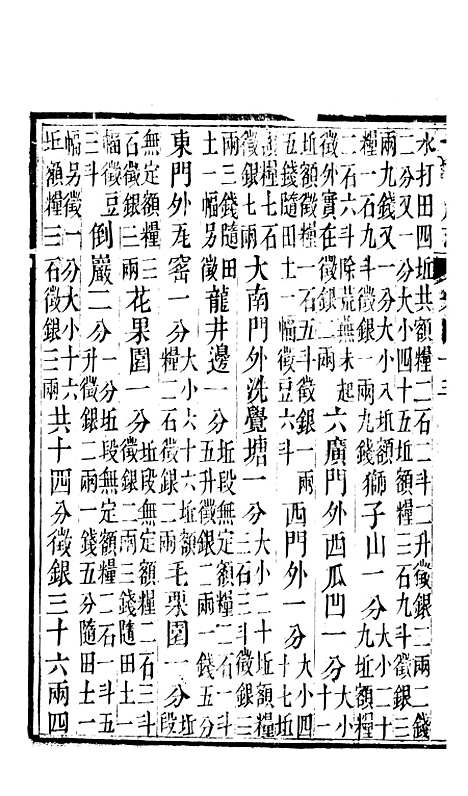 水打田四坵共額糧二石二斗二升徵銀二兩二錢
二分又一分大小四十五坵額糧三石九斗徵銀三
兩九錢又一分大小入坵額
糧一石九斗徵銀一兩九錢
獅子山一分
大小二十
九坵額糧
二石六斗除荒蕪未起
徵外實在徵銀二兩
六廣門外西瓜凹一分
大小一十
坵額徵糧一石五斗徵銀一兩
五錢隨田土一幅徵豆六斗
西門外一分
大小四
十七坵
額糧七石
徵銀七兩
大南門外洗覺塘一分
大小二十坵額糧
三石三斗徵銀三
兩三錢隨田
土一幅另徵
龍井邊一分
坵段無定額糧二石一斗
五升徵銀二兩一錢五分
東門外瓦窑一分
大小六十六坵額
糧二石徵銀二兩
毛栗園一分
坵
段
無定額糧三
石徵銀三兩
花果園一分
坵段無定額糧二石三斗
徵銀二兩三錢隨田土一
幅徵豆
三斗
倒巖二分
一分坵段無定額糧二石一斗五
升徵銀二兩一錢五分隨田土一
幅另徵一分大小十六
坵額糧三石徵銀三兩
共十四分徵銀三十六兩四